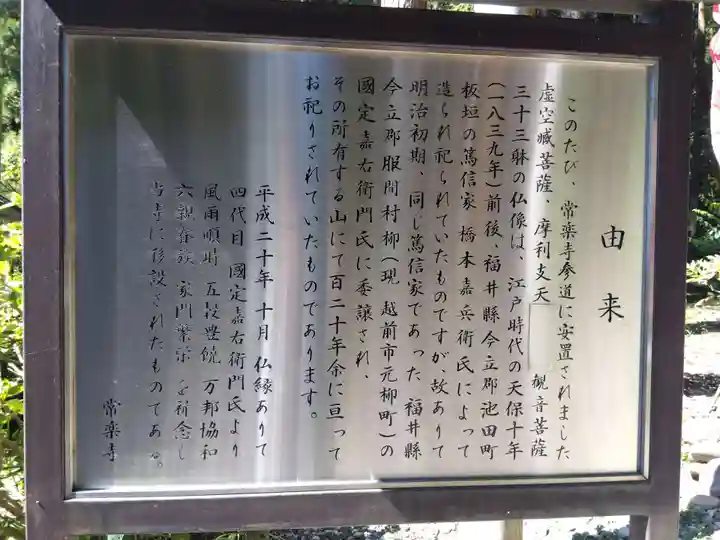 由来
このたび、常楽寺参道に安置されました
虚空臧菩薩、摩利支天 観音菩薩
三十三躰の仏像は、江戸時代の天保十年
(一八三九年)前後、福井縣今立郡池田町
板垣の篤信家 橋本嘉兵衛氏によって
造られ祀られていたものですが、故ありて
明治初期、同じ篤信家であった 福井縣
今立郡服間村柳(現 越前市元柳町)の
國定嘉右衛門氏に委譲され、
その所有する山にて百二十年余に亘って
お祀りされていたものであります。
平成二十年 十月 仏縁ありて
四代目 國定嘉右衛門氏より
風雨順時 五穀豊饒 万邦協和
六親眷族 家門繁栄 を祈念し
当寺に移設されたものである。
常楽寺